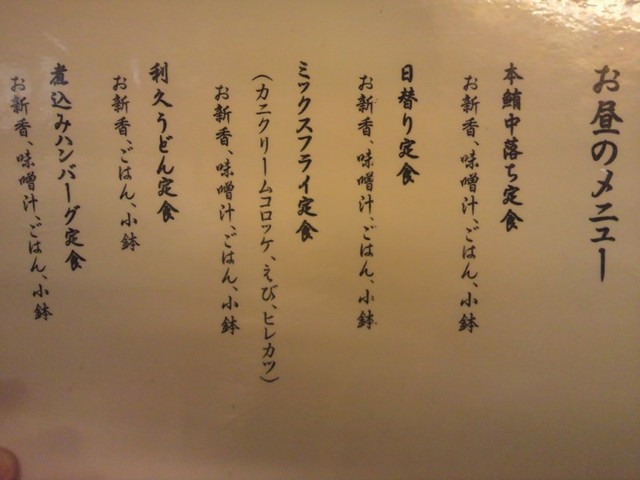 お昼のメニュー
本鮪中落ち定食
お新香、味噌汁、ごはん、小鉢
日替り定食
お新香、味噌汁、ごはん、小鉢
ミックスフライ定食
（カニクリームコロッケ、えび、ヒレカツ）
お新香、味噌汁、ごはん、小鉢
利久うどん定食
お新香、ごはん、小鉢
煮込みハンバーグ定食
お新香、味噌汁、ごはん、小鉢